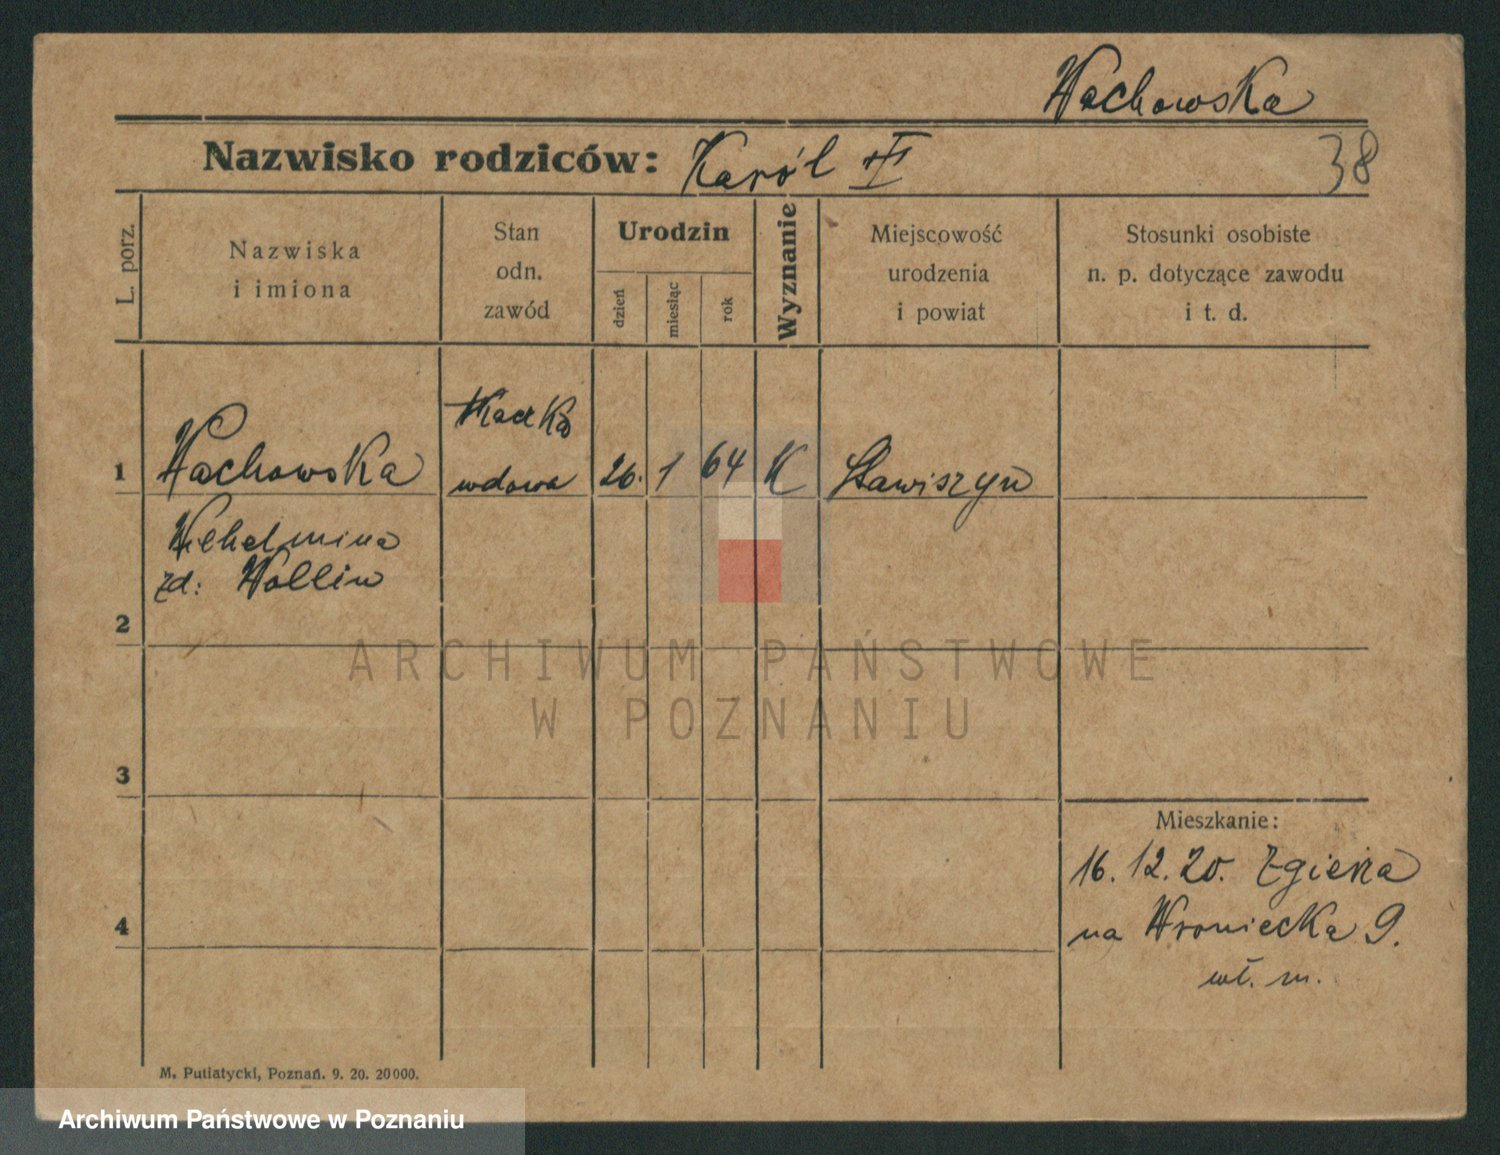 Wachowska
Nazwisko rodziców: Karól III
38
L. porz.
Nazwiska
i imiona
Stan
odn.
zawód
Urodzin
dzień
miesiąc
rok
Wyznanie
Miejscowość
urodzenia
i powiat
Stosunki osobiste
n. p. dotyczące zawodu
i t. d.
1 Wachowska
wdowa 26. 1 64 K Stawiszyn
Wilhelmina
zd: Wollin
2
ARCHIWUM PAŃSTWOWE
W POZNANIU
3
Mieszkanie:
16. 12. 20. Zgierza
na Wroniecka 9.
wł. m.
4
M. Putiatycki, Poznań. 9. 20. 20000.
Archiwum Państwowe w Poznaniu